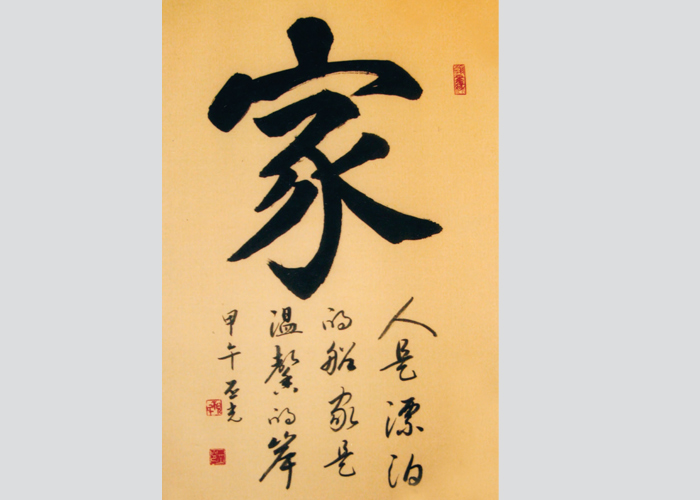 家
人是漂泊
的船家是
温馨的岸
甲午